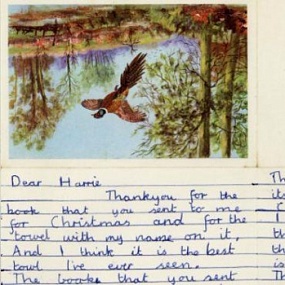 Dear Harrie
Thankyou for the
book that you sent to me
for Christmas and for the
towel with my name on it,
And I think it is the best
towl I've ever seen.
The books that you sent
Th
its
I
th
is
Th